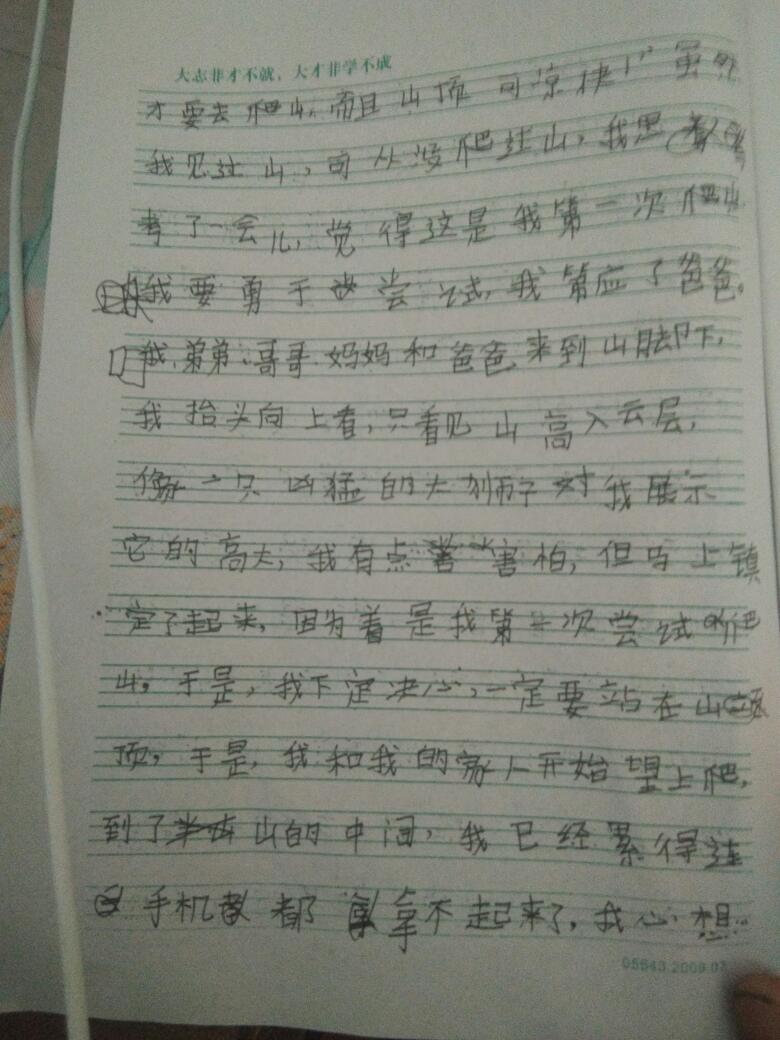 大志非才不就，大才非学不成
才要去爬山，而且山顶可凉快了”虽然
我见过山，可从没爬过山，我思
考了一会儿，觉得这是我第一次爬山
我要勇于尝试，我答应了爸爸。
我、弟弟、哥哥、妈妈和爸爸来到山脚下，
我抬头向上看，只看见山高入云层，
像一只凶猛的大狮子对我展示
它的高大，我有点害怕，但马上镇
定了起来，因为着是我第一次尝试爬
山，于是，我下定决心，一定要站在山
顶，于是，我和我的家人开始望上爬，
到了山的中间，我已经累得连
手机都拿不起来了，我心想
05643.2009.07